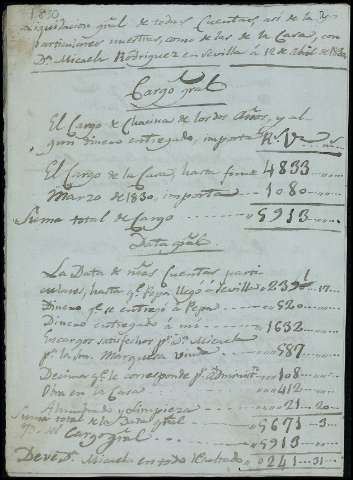 1830
Liquidacion gral de todas Cuentas, asi de las
particulares nuestras, como de las de la Casa, con
Dª Micaela Rodriguez en Sevilla á 12 de Abril de 1830
Cargo gral
El Cargo de Chacina de los dos Años, y el
gral dinero entregado, importa Rs Vn
4833
El Cargo de la Casa, hasta fin de
Marzo de 1830, importa 1080
Suma total de Cargo 5913
Data gral
La Data de nras Cuentas parti
culares, hasta qe Pepa llegó á Sevilla 2391 17
Dinero qe se entregó á Pepa 520
Dinero entregado á mi 1632
Encargos satisfechos pr Dª Micaela
pª la Sra Marquesa Viuda 587
Decima qe le corresponde pr Admon 108
Obra en la Casa 412
Alumbrado y Limpieza 21 20
Suma total de la Data gral 5671 3
el Cargo gral 5913
Deve Dª Micaela en todo 241 31